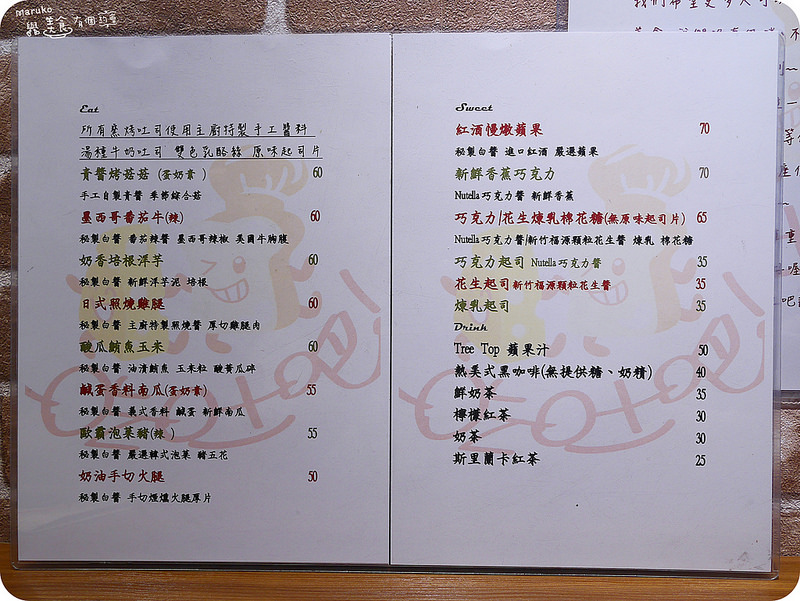 maruko
Eat
所有窯烤吐司使用主廚特製手工醬料
湯種牛奶吐司 雙色乳酪絲 原味起司片
青醬烤菇菇 (蛋奶素) 60
手工自製青醬 季節綜合菇
墨西哥番茄牛(辣) 60
秘製白醬 番茄辣醬 墨西哥辣椒 美國牛胸腹
奶香培根洋芋 60
秘製白醬 新鮮洋芋泥 培根
日式照燒雞腿 60
秘製白醬 主廚特製照燒醬 厚切雞腿肉
酸瓜鮪魚玉米 60
秘製白醬 油漬鮪魚 玉米粒 酸黃瓜碎
鹹蛋香料南瓜(蛋奶素) 55
秘製白醬 義式香料 鹹蛋 新鮮南瓜
歐霸泡菜豬(辣) 55
秘製白醬 嚴選韓式泡菜 豬五花
奶油手切火腿 50
秘製白醬 手切煙燻火腿厚片
Sweet
紅酒慢燉蘋果 70
秘製白醬 進口紅酒 嚴選蘋果
新鮮香蕉巧克力 70
Nutella巧克力醬 新鮮香蕉
巧克力/花生煉乳棉花糖(無原味起司片) 65
Nutella巧克力醬/新竹福源顆粒花生醬 煉乳 棉花糖
巧克力起司 Nutella巧克力醬 35
花生起司 新竹福源顆粒花生醬 35
煉乳起司 35
Drink
Tree Top 蘋果汁 50
熱美式黑咖啡(無提供糖、奶精) 40
鮮奶茶 35
檸檬紅茶 30
奶茶 30
斯里蘭卡紅茶 25